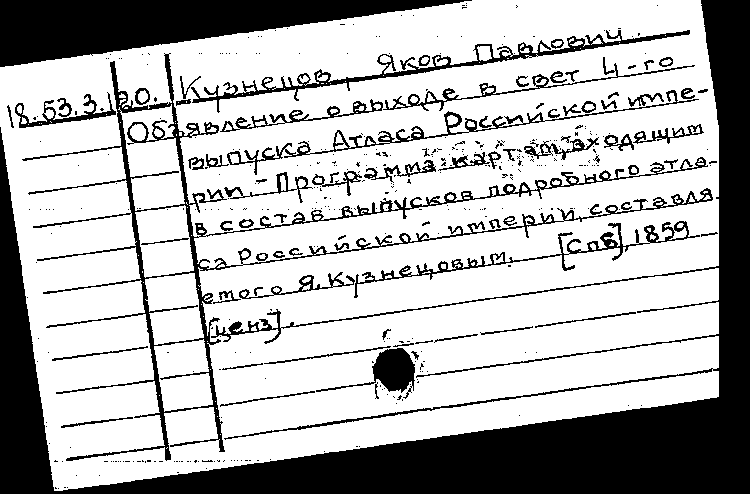 18.53.3.120. Кузнецов, Яков Павлович.
Объявление о выходе в свет 4-го
выпуска Атласа Российской импе-
рии. - Программа картам, входящим
в состав выпусков подробного атла-
са Российской империи, составля
емого Я. Кузнецовым. [СПб], 1859
[ценз].